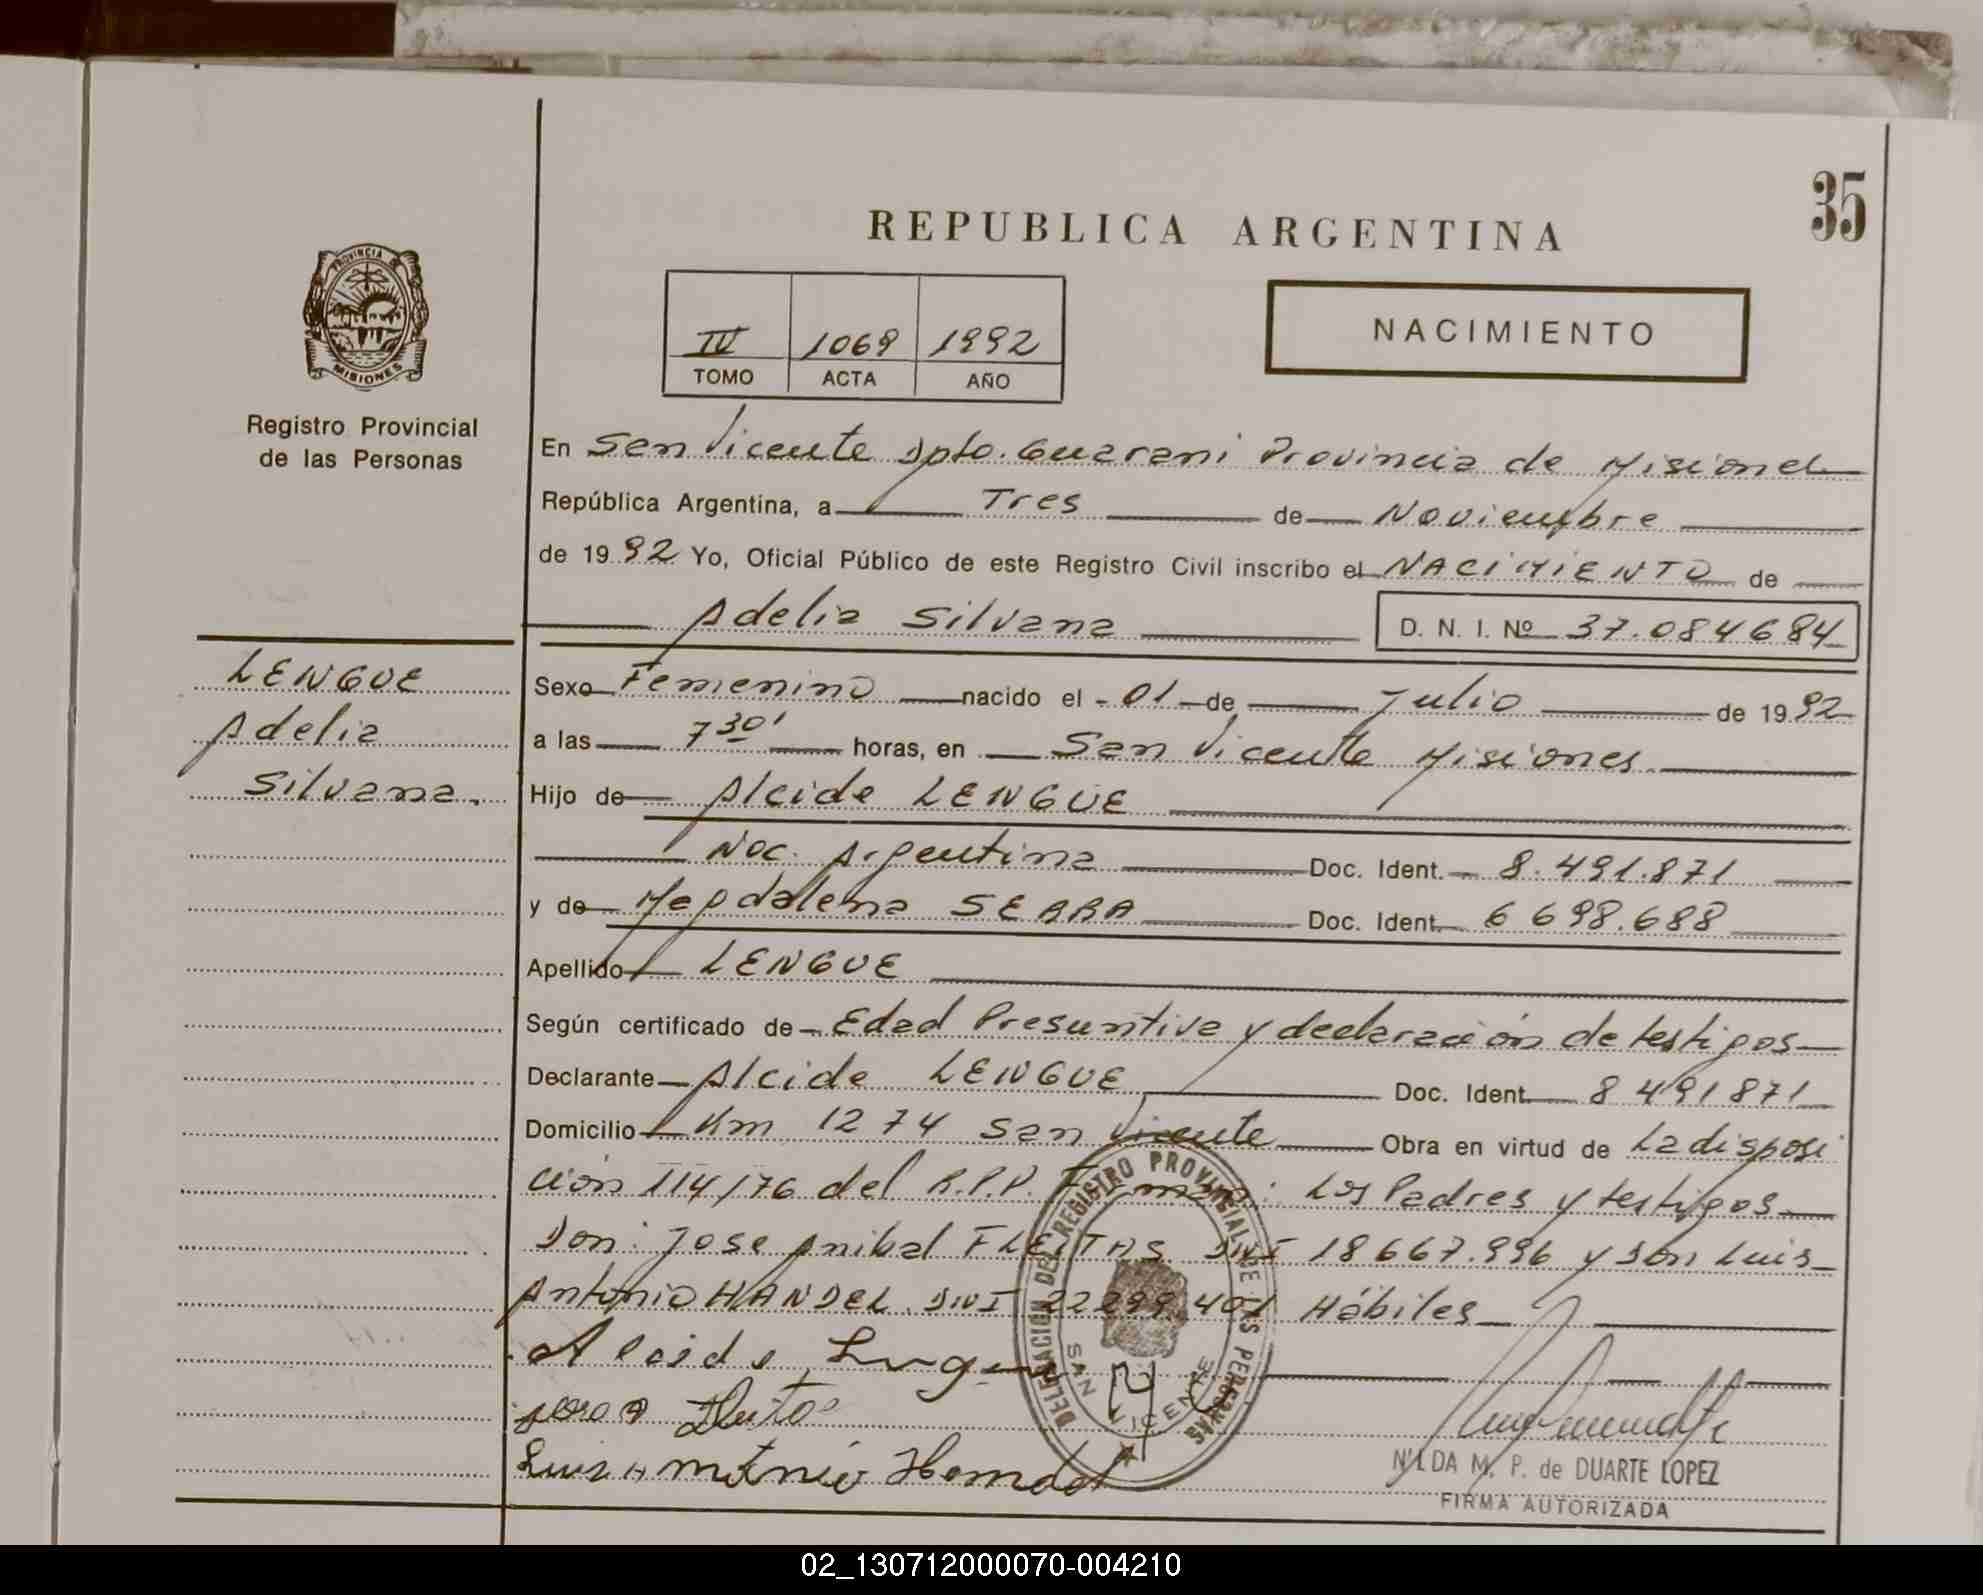 35
REPUBLICA ARGENTINA
PROVINCIA DE
MISIONES
Registro Provincial
de las Personas
IV 1069 1992
TOMO ACTA AÑO
NACIMIENTO
En San Vicente Dpto. Guarani Provincia de Misiones
República Argentina, a Tres de Noviembre
de 1992 Yo, Oficial Público de este Registro Civil inscribo el NACIMIENTO de
Adelia Silvana D. N. I. Nº 37.084684
LENGUE
Adelia
Silvana.
Sexo Femenino nacido el 01 de Julio de 1992
a las 7 30' horas, en San Vicente Misiones.
Hijo de Alcide LENGUE
Nac. Argentina Doc. Ident. 8.491.871
y de Magdalena SEARA Doc. Ident. 6698.688
Apellido LENGUE
Según certificado de Edad Presuntiva y declaración de testigos
Declarante Alcide LENGUE Doc. Ident. 8491871
Domicilio Km 1274 San Vicente Obra en virtud de La disposi
ción 114/76 del R.P.P. Firman: Los Padres y testigos
Don: Jose Anibal FLEITAS DNI 18667.996 y Don Luis
Antonio HANDEL DNI 22299.401 Hábiles
DELEGACION DEL REGISTRO PROVINCIAL DE LAS PERSONAS
SAN VICENTE
NILDA M. P. de DUARTE LOPEZ
FIRMA AUTORIZADA
02_130712000070-004210